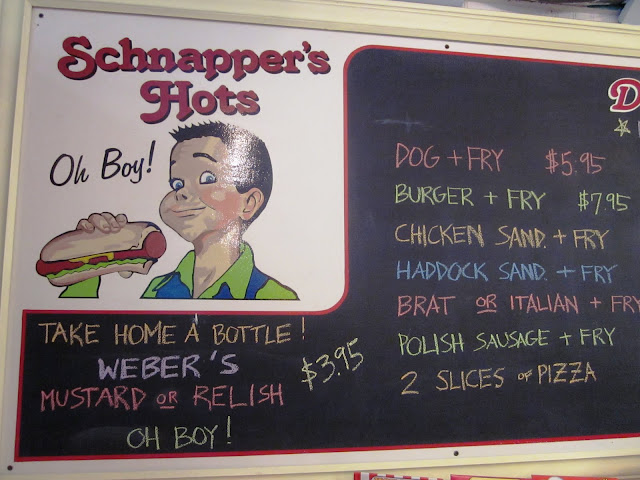 Schnapper's
Hots
Oh Boy!
DOG + FRY $5.95
BURGER + FRY $7.95
CHICKEN SAND. + FRY
HADDOCK SAND. + FRY
BRAT OR ITALIAN + FRY
POLISH SAUSAGE + FRY
2 SLICES OF PIZZA
TAKE HOME A BOTTLE!
WEBER'S
MUSTARD OR RELISH
$3.95
OH BOY!